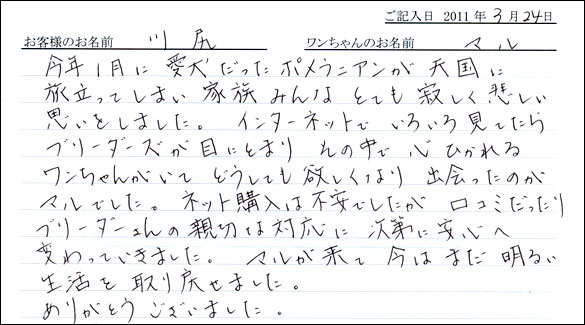 ご記入日 2011年3月24日
お客様のお名前 川尻 ワンちゃんのお名前 マル
今年1月に愛犬だったポメラニアンが天国に
旅立ってしまい家族みんなとても寂しく悲しい
思いをしました。インターネットでいろいろ見てたら
ブリーダーズが目にとまりその中で心ひかれる
ワンちゃんがいてどうしても欲しくなり出会ったのが
マルでした。ネット購入は不安でしたが口コミだったり
ブリーダーさんの親切な対応に次第に安心へ
変わっていきました。マルが来て今はまだ明るい
生活を取り戻せました。
ありがとうございました。